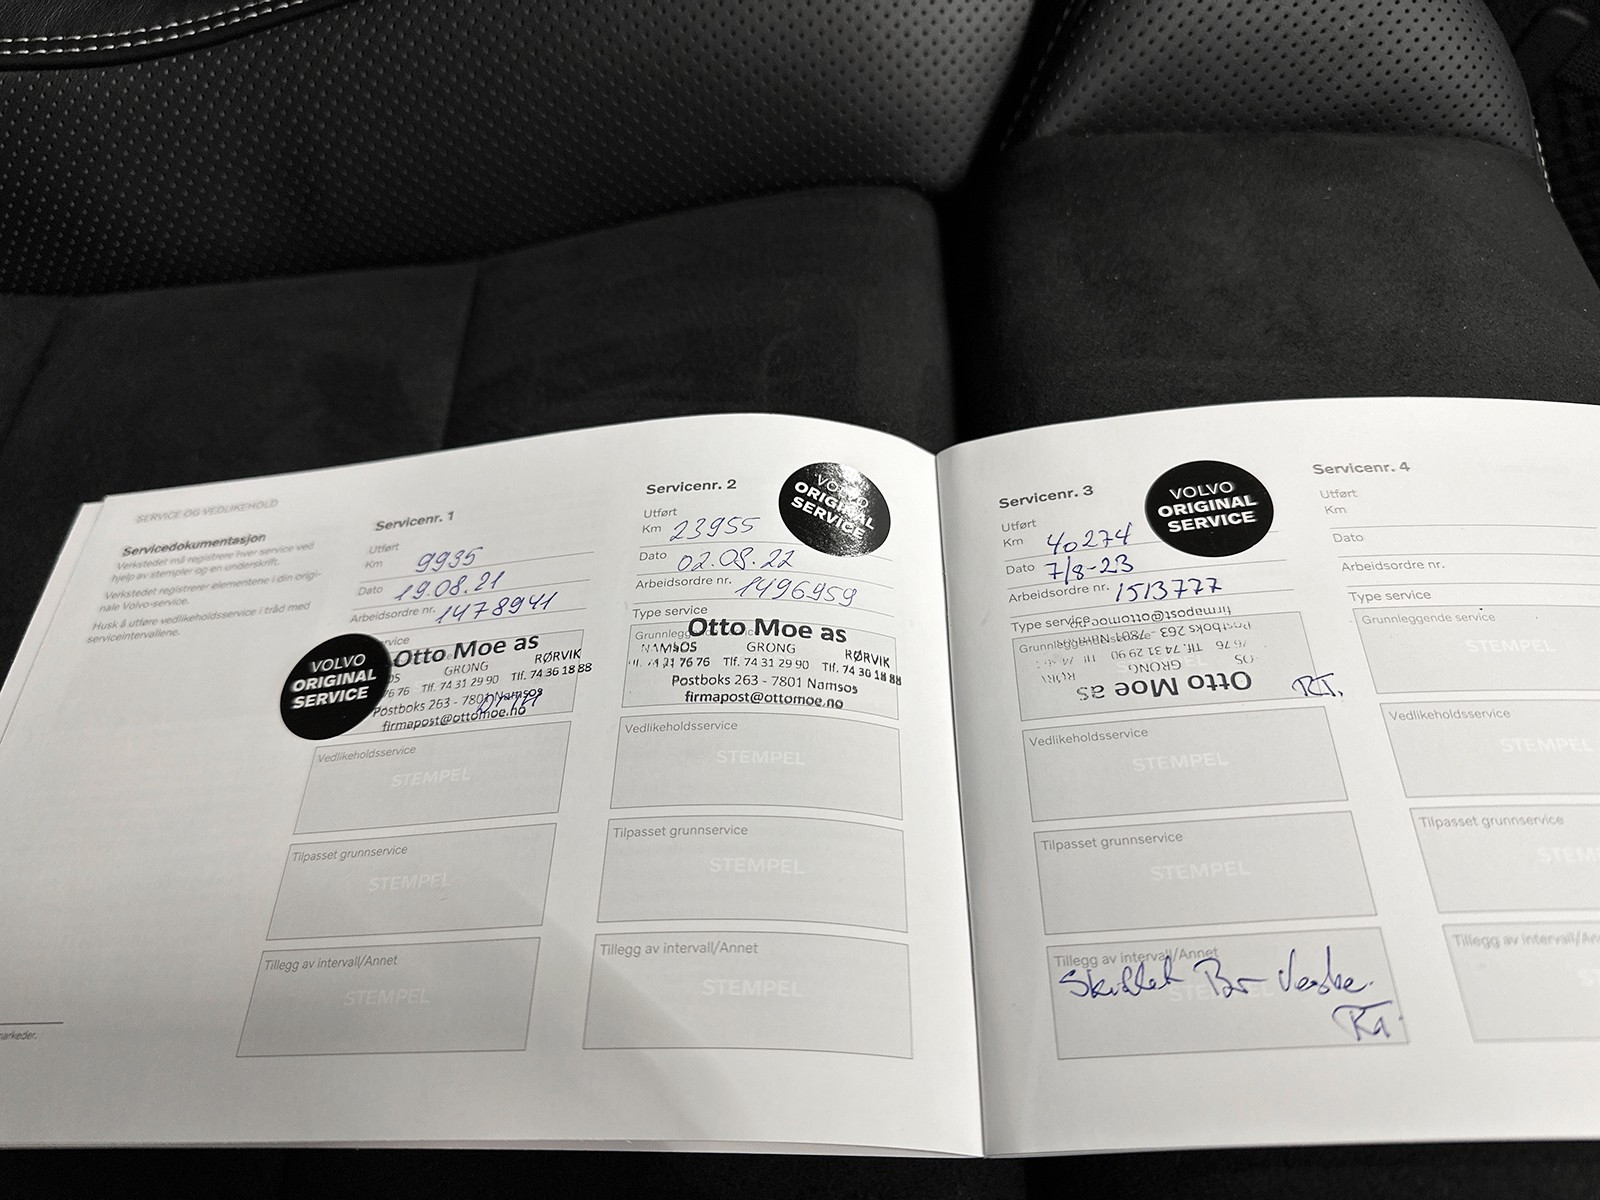 SERVICE OG VEDLIKEHOLD
Servicedokumentasjon
Verkstedet må registrere hver service ved
hjelp av stempler og en underskrift.
Verkstedet registrerer elementene i din origi-
nale Volvo-service.
Husk å utføre vedlikeholdsservice i tråd med
serviceintervallene.
markeder.
Servicenr. 1
Utført
Km 9935
Dato 19.08.21
Arbeidsordre nr. 1478941
VOLVO
ORIGINAL
SERVICE
Otto Moe as
GRONG RØRVIK
76 76 Tlf. 74 31 29 90 Tlf. 74 36 18 88
Postboks 263 - 7801 Namsos
firmapost@ottomoe.no
Vedlikeholdsservice
STEMPEL
Tilpasset grunnservice
STEMPEL
Tillegg av intervall/Annet
STEMPEL
Servicenr. 2
VOLVO
ORIGINAL
SERVICE
Utført
Km 23955
Dato 02.08.22
Arbeidsordre nr. 1496959
Type service
Otto Moe as
NAMSOS GRONG RØRVIK
76 76 Tlf. 74 31 29 90 Tlf. 74 36 18 88
Postboks 263 - 7801 Namsos
firmapost@ottomoe.no
Vedlikeholdsservice
STEMPEL
Tilpasset grunnservice
STEMPEL
Tillegg av intervall/Annet
STEMPEL
Servicenr. 3
VOLVO
ORIGINAL
SERVICE
Utført
Km 40274
Dato 7/8-23
Arbeidsordre nr. 1513777
Type service
Grunnleggende service
firmapost@ottomoe
Postboks 263 - 7801
76 76 Tlf. 74 31 29 90
GRONG
Otto Moe as
Vedlikeholdsservice
STEMPEL
Tilpasset grunnservice
STEMPEL
Tillegg av intervall/Annet
Skiftet Br Veske.
Servicenr. 4
Utført
Km
Dato
Arbeidsordre nr.
Type service
Grunnleggende service
STEMPEL
Vedlikeholdsservice
STEMPEL
Tilpasset grunnservice
STEM
Tillegg av intervall/An